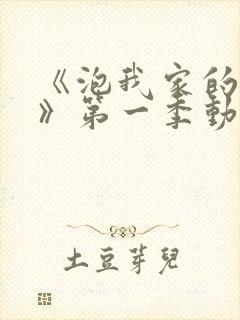 《泡我家的
》第一季動
土豆芽兒